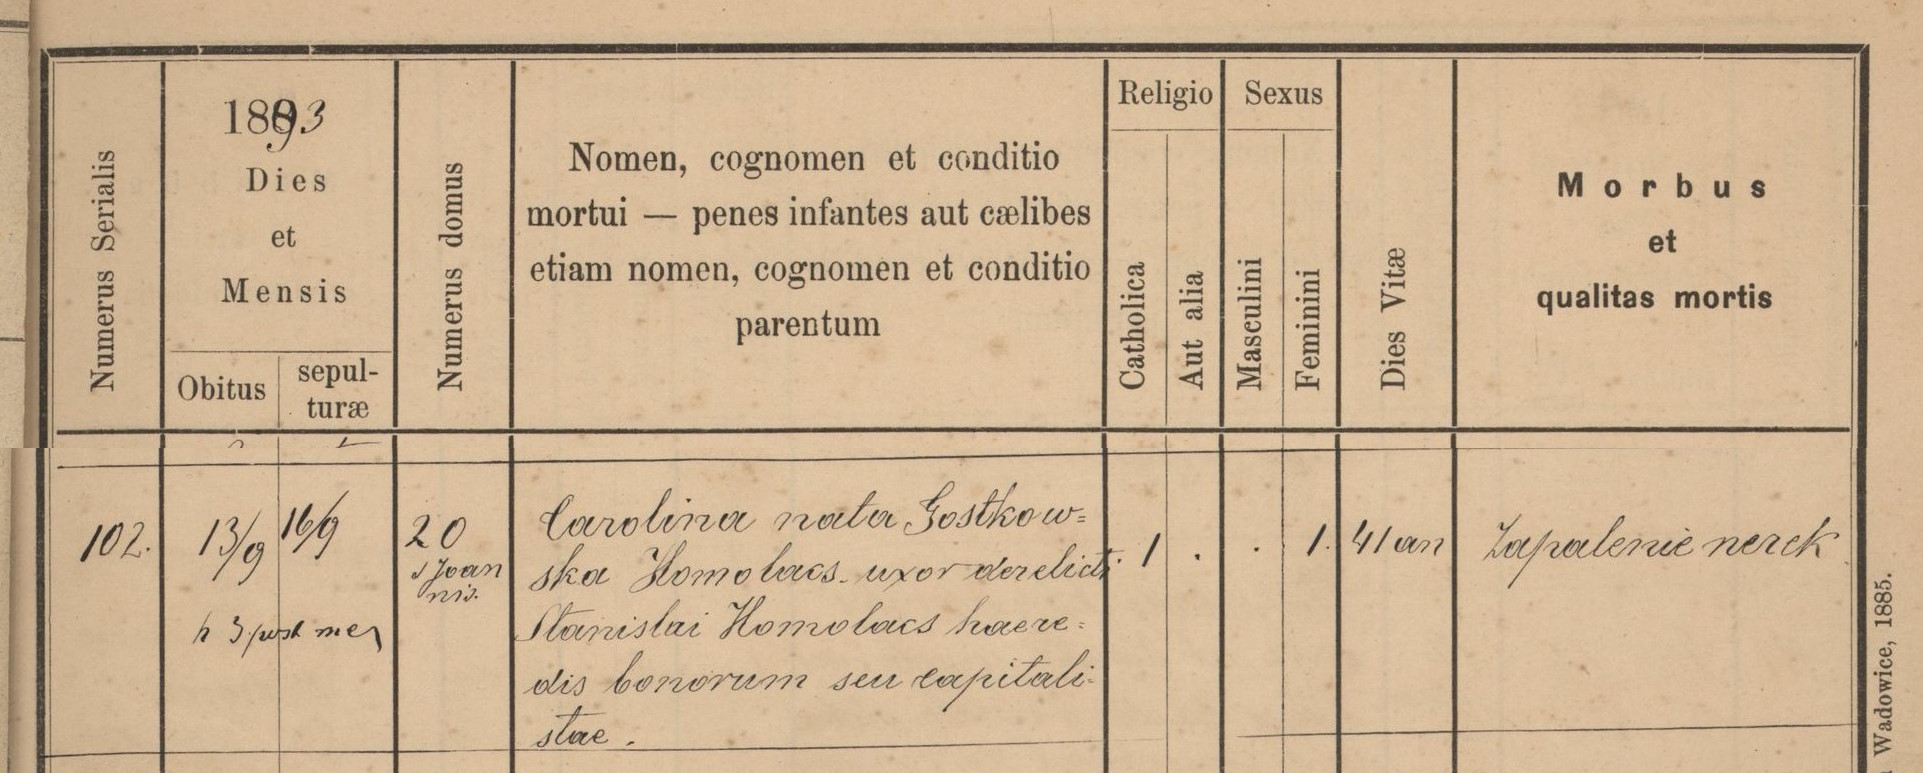 1893
Dies
et
Mensis
Numerus Serialis
Obitus
sepul-
turæ
Numerus domus
Nomen, cognomen et conditio
mortui — penes infantes aut cælibes
etiam nomen, cognomen et conditio
parentum
Religio
Catholica
Aut alia
Sexus
Masculini
Feminini
Dies Vitæ
Morbus
et
qualitas mortis
102.
13/9
16/9
h 3 post mer
20
s Joan
nis.
Carolina nata Gostkow=
ska Homolacs. uxor derelicti
Stanislai Homolacs haere=
dis bonorum seu capitali=
stae.
1 . . 1. 41 an
Zapalenie nerek
Wadowice, 1885.